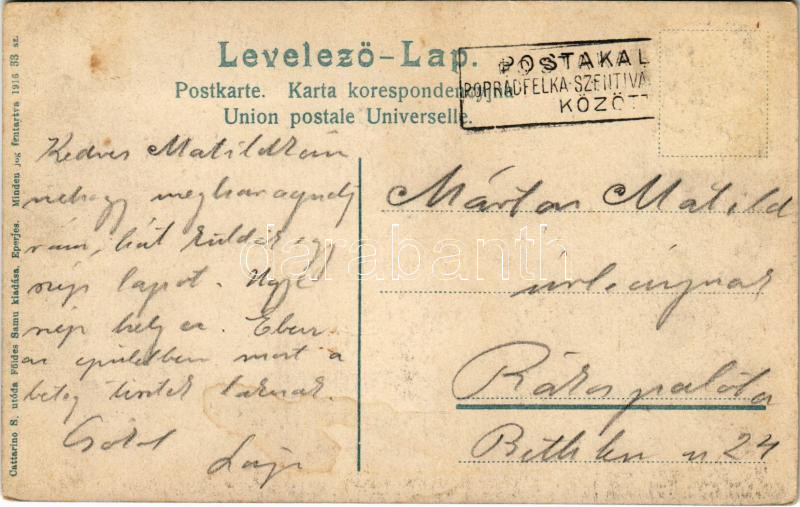 Levelező-Lap.
Postkarte. Karta korespondencyjna
Union postale Universelle.
POSTAKAL
POPRÁDFELKA-SZENTIVÁ
KÖZÖTT
Cattarino S. utóda Földes Samu kiadása, Eperjes. Minden jog fentartva 1916 33 sz.
Kedves Matildkám
nehogy megharagudj
rám, hát küldök egy
szép lapot. Ugye
szép hely ez. Eben
az épületben most a
beteg tisztek laknak.
Csókol
Laji
Márton Matild
úrleánynak
Rákospalota
Bethlen u 24
darabanth